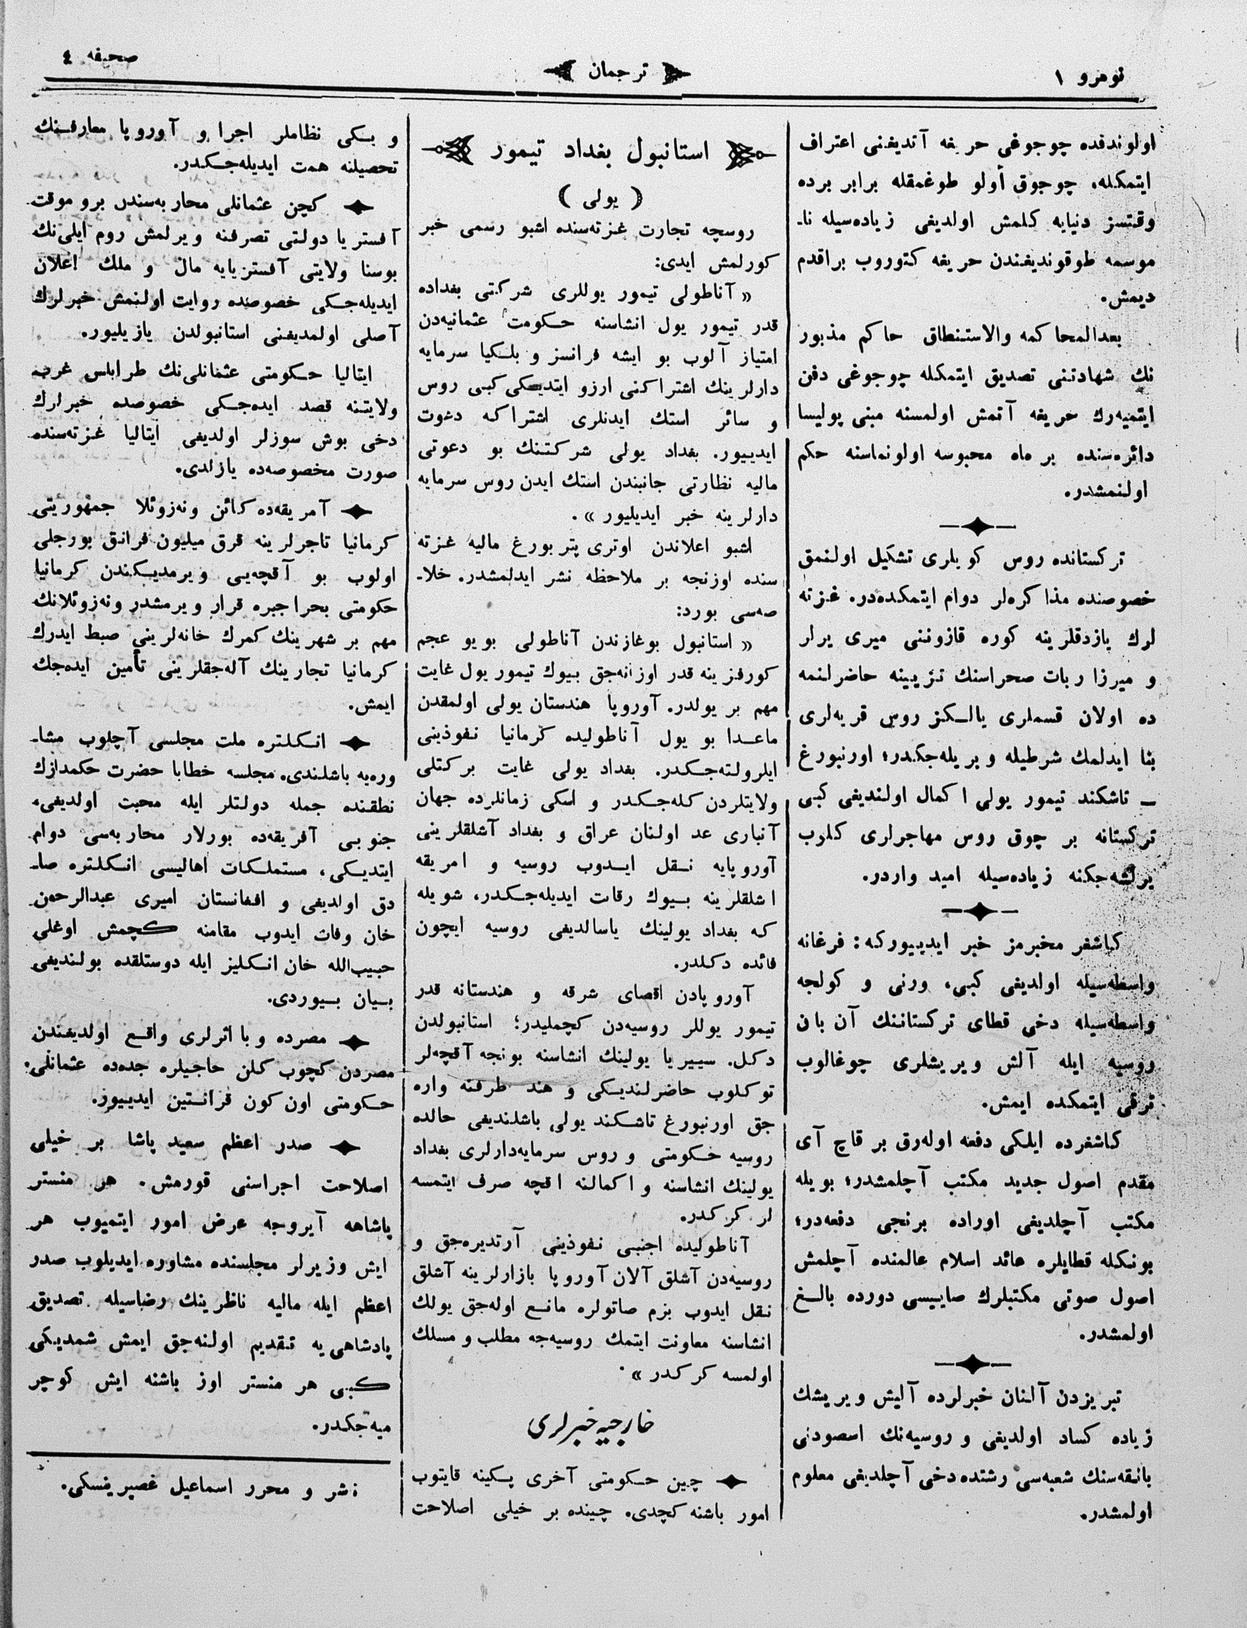 نومرو ١
ترجمان
صحیفه ٤
اولوندقده چوجوغی حریفه آتدیغنی اعتراف
ایتمکله، چوجوق أولو طوغمقله برابر برده
وقتسز دنیایه کلمش اولدیغی زیاده‌سیله نا-
موسمه طوقوندیغندن حریفه کتوروب براقدم
دیمش.
بعدالمحاکمه والاستنطاق حاکم مذبور
نك شهادتنی تصدیق ایتمکله چوجوغی دفن
ایتمیه‌رك حریفه آتمش اولمسنه مبنی پولیسا
دائره‌سنده بر ماه محبوسه اولونماسنه حکم
اولنمشدر.
ترکستانده روس کویلری تشکیل اولنمق
خصوصنده مذاکره‌لر دوام ایتمکده‌در. غزته
لرك یازدقلرینه کوره قازوننی میری یرلر
و میرزا ربات صحراسنك تزیینه حاضرلنمه
ده اولان قسملری یالکز روس قریه‌لری
بنا ایدلمك شرطیله ویریله‌جکدر؛ اورنبورغ
– تاشکند تیمور یولی اکمال اولندیغی کبی
ترکستانه بر چوق روس مهاجرلری کلوب
یرلشه‌جکنه زیاده‌سیله امید واردر.
کاشغر مخبرمز خبر ایدییورکه: فرغانه
واسطه‌سیله اولدیغی کبی، ورنی و کولجه
واسطه‌سیله دخی قطای ترکستاننك آن بان
روسیه ایله آلش ویریشلری چوغالوب
ترقی ایتمکده ایمش.
کاشغرده ایلکی دفعه اوله‌رق بر قاچ آی
مقدم اصول جدید مکتب آچلمشدر؛ بویله
مکتب آچلدیغی اوراده برنجی دفعه‌در؛
بونکله قطایلره عائد اسلام عالمنده آچلمش
اصول صوتی مکتبلرك صاییسی دورده بالغ
اولمشدر.
تبریزدن آلنان خبرلرده آلیش ویریشك
زیاده کساد اولدیغی و روسیه‌نك اسصودنی
بانقه‌سنك شعبه‌سی رشتده دخی آچلدیغی معلوم
اولمشدر.
استانبول بغداد تیمور
( یولی )
روسچه تجارت غزته‌سنده اشبو رسمی خبر
کورلمش ایدی:
« آناطولی تیمور یوللری شرکتی بغداده
قدر تیمور یول انشاسنه حکومت عثمانیه‌دن
امتیاز آلوب بو ایشه فرانسز و بلکیا سرمایه
دارلرینك اشتراکنی ارزو ایتدیکی کبی روس
و سائر استك ایدنلری اشتراکه دعوت
ایدییور. بغداد یولی شرکتنك بو دعوتی
مالیه نظارتی جانبندن استك ایدن روس سرمایه
دارلرینه خبر ایدیلیور ».
اشبو اعلاندن اوتری پتربورغ مالیه غزته
سنده اوزنجه بر ملاحظه نشر ایدلمشدر. خلا-
صه‌سی بورد:
« استانبول بوغازندن آناطولی بویو عجم
کورفزینه قدر اوزانه‌جق بیوك تیمور یول غایت
مهم بر یولدر. آوروپا هندستان یولی اولمقدن
ماعدا بو یول آناطولیده کرمانیا نفوذینی
ایلرولته‌جکدر. بغداد یولی غایت برکتلی
ولایتلردن کله‌جکدر و اسکی زمانلرده جهان
آنباری عد اولنان عراق و بغداد آشلقلرینی
آوروپایه نقل ایدوب روسیه و امریقه
اشلقلرینه بیوك رقات ایدیله‌جکدر، شویله
که بغداد یولینك یاسالدیغی روسیه ایچون
فائده دکلدر.
آوروپادن اقصای شرقه و هندستانه قدر
تیمور یوللر روسیه‌دن کچملیدر؛ استانبولدن
دکل. سیبریا یولینك انشاسنه بونجه آقچه‌لر
توکلوب حاضرلندیکی و هند طرفنه واره
جق اورنبورغ تاشکند یولی باشلندیغی حالده
روسیه حکومتی و روس سرمایه‌دارلری بغداد
یولینك انشاسنه و اکمالنه اقچه صرف ایتمسه
لر کرکدر.
آناطولیده اجنبی نفوذینی آرتدیره‌جق و
روسیه‌دن آشلق آلان آوروپا بازارلرینه آشلق
نقل ایدوب بزم صاتولره مانع اوله‌جق یولك
انشاسنه معاونت ایتمك روسیه‌جه مطلب و مسلك
اولمسه کرکدر ».
خارجیه خبرلری
چین حکومتی آخری پکینه قایتوب
امور باشنه کچدی. چینده بر خیلی اصلاحت
و یکی نظاملر اجرا و آوروپا معارفنك
تحصیلنه همت ایدیله‌جکدر.
کچن عثمانلی محاربه‌سندن برو موقت
آفستریا دولتی تصرفنه ویرلمش روم ایلی‌نك
بوسنا ولایتی آفستریایه مال و ملك اعلان
ایدیله‌جکی خصوصده روایت اولنمش خبرلرك
آصلی اولمدیغنی استانبولدن یازیلیور.
ایتالیا حکومتی عثمانلی‌نك طرابلس غرب
ولایتنه قصد ایده‌جکی خصوصده خبرلرك
دخی بوش سوزلر اولدیغی ایتالیا غزته‌سنده
صورت مخصوصه‌ده یازلدی.
آمریقه‌ده کائن ونه‌زوئلا جمهوریتی
کرمانیا تاجرلرینه قرق میلیون فرانق بورجلی
اولوب بو آقچه‌یی ویرمدیکندن کرمانیا
حکومتی بحرا جبره قرار ویرمشدر ونه‌زوئلانك
مهم بر شهرینك کمرك خانه‌لرینی صبط ایدرك
کرمانیا تجارینك آله‌جقلرینی تأمین ایده‌جك
ایمش.
انکلتره ملت مجلسی آچلوب مشا-
وره‌یه باشلندی. مجلسه خطابا حضرت حکمدارك
نطقنده جمله دولتلر ایله محبت اولدیغی،
جنوبی آفریقه‌ده بورلار محاربه‌سی دوام
ایتدیکی، مستملکات اهالیسی انکلتره صا-
دق اولدیغی و افغانستان امیری عبدالرحمن
خان وفات ایدوب مقامنه کچمش اوغلی
حبیب‌الله خان انکلیز ایله دوستلقده بولندیغی
بیان بیوردی.
مصرده وبا اثرلری واقع اولدیغندن
مصردن کچوب کلن حاجیلره جده‌ده عثمانلی
حکومتی اون کون قرانتین ایدییور.
صدر اعظم سعید پاشا بر خیلی
اصلاحت اجراسنی قورمش. هر منستر
پاشاهه آیروجه عرض امور ایتمیوب هر
ایش وزیرلر مجلسنده مشاوره ایدیلوب صدر
اعظم ایله مالیه ناظرینك رضاسیله تصدیق
پادشاهی‌یه تقدیم اولنه‌جق ایمش شمدیکی
کبی هر منستر اوز باشنه ایش کوچر
میه‌جکدر.
ناشر و محرر اسماعیل غصپرینسکی.